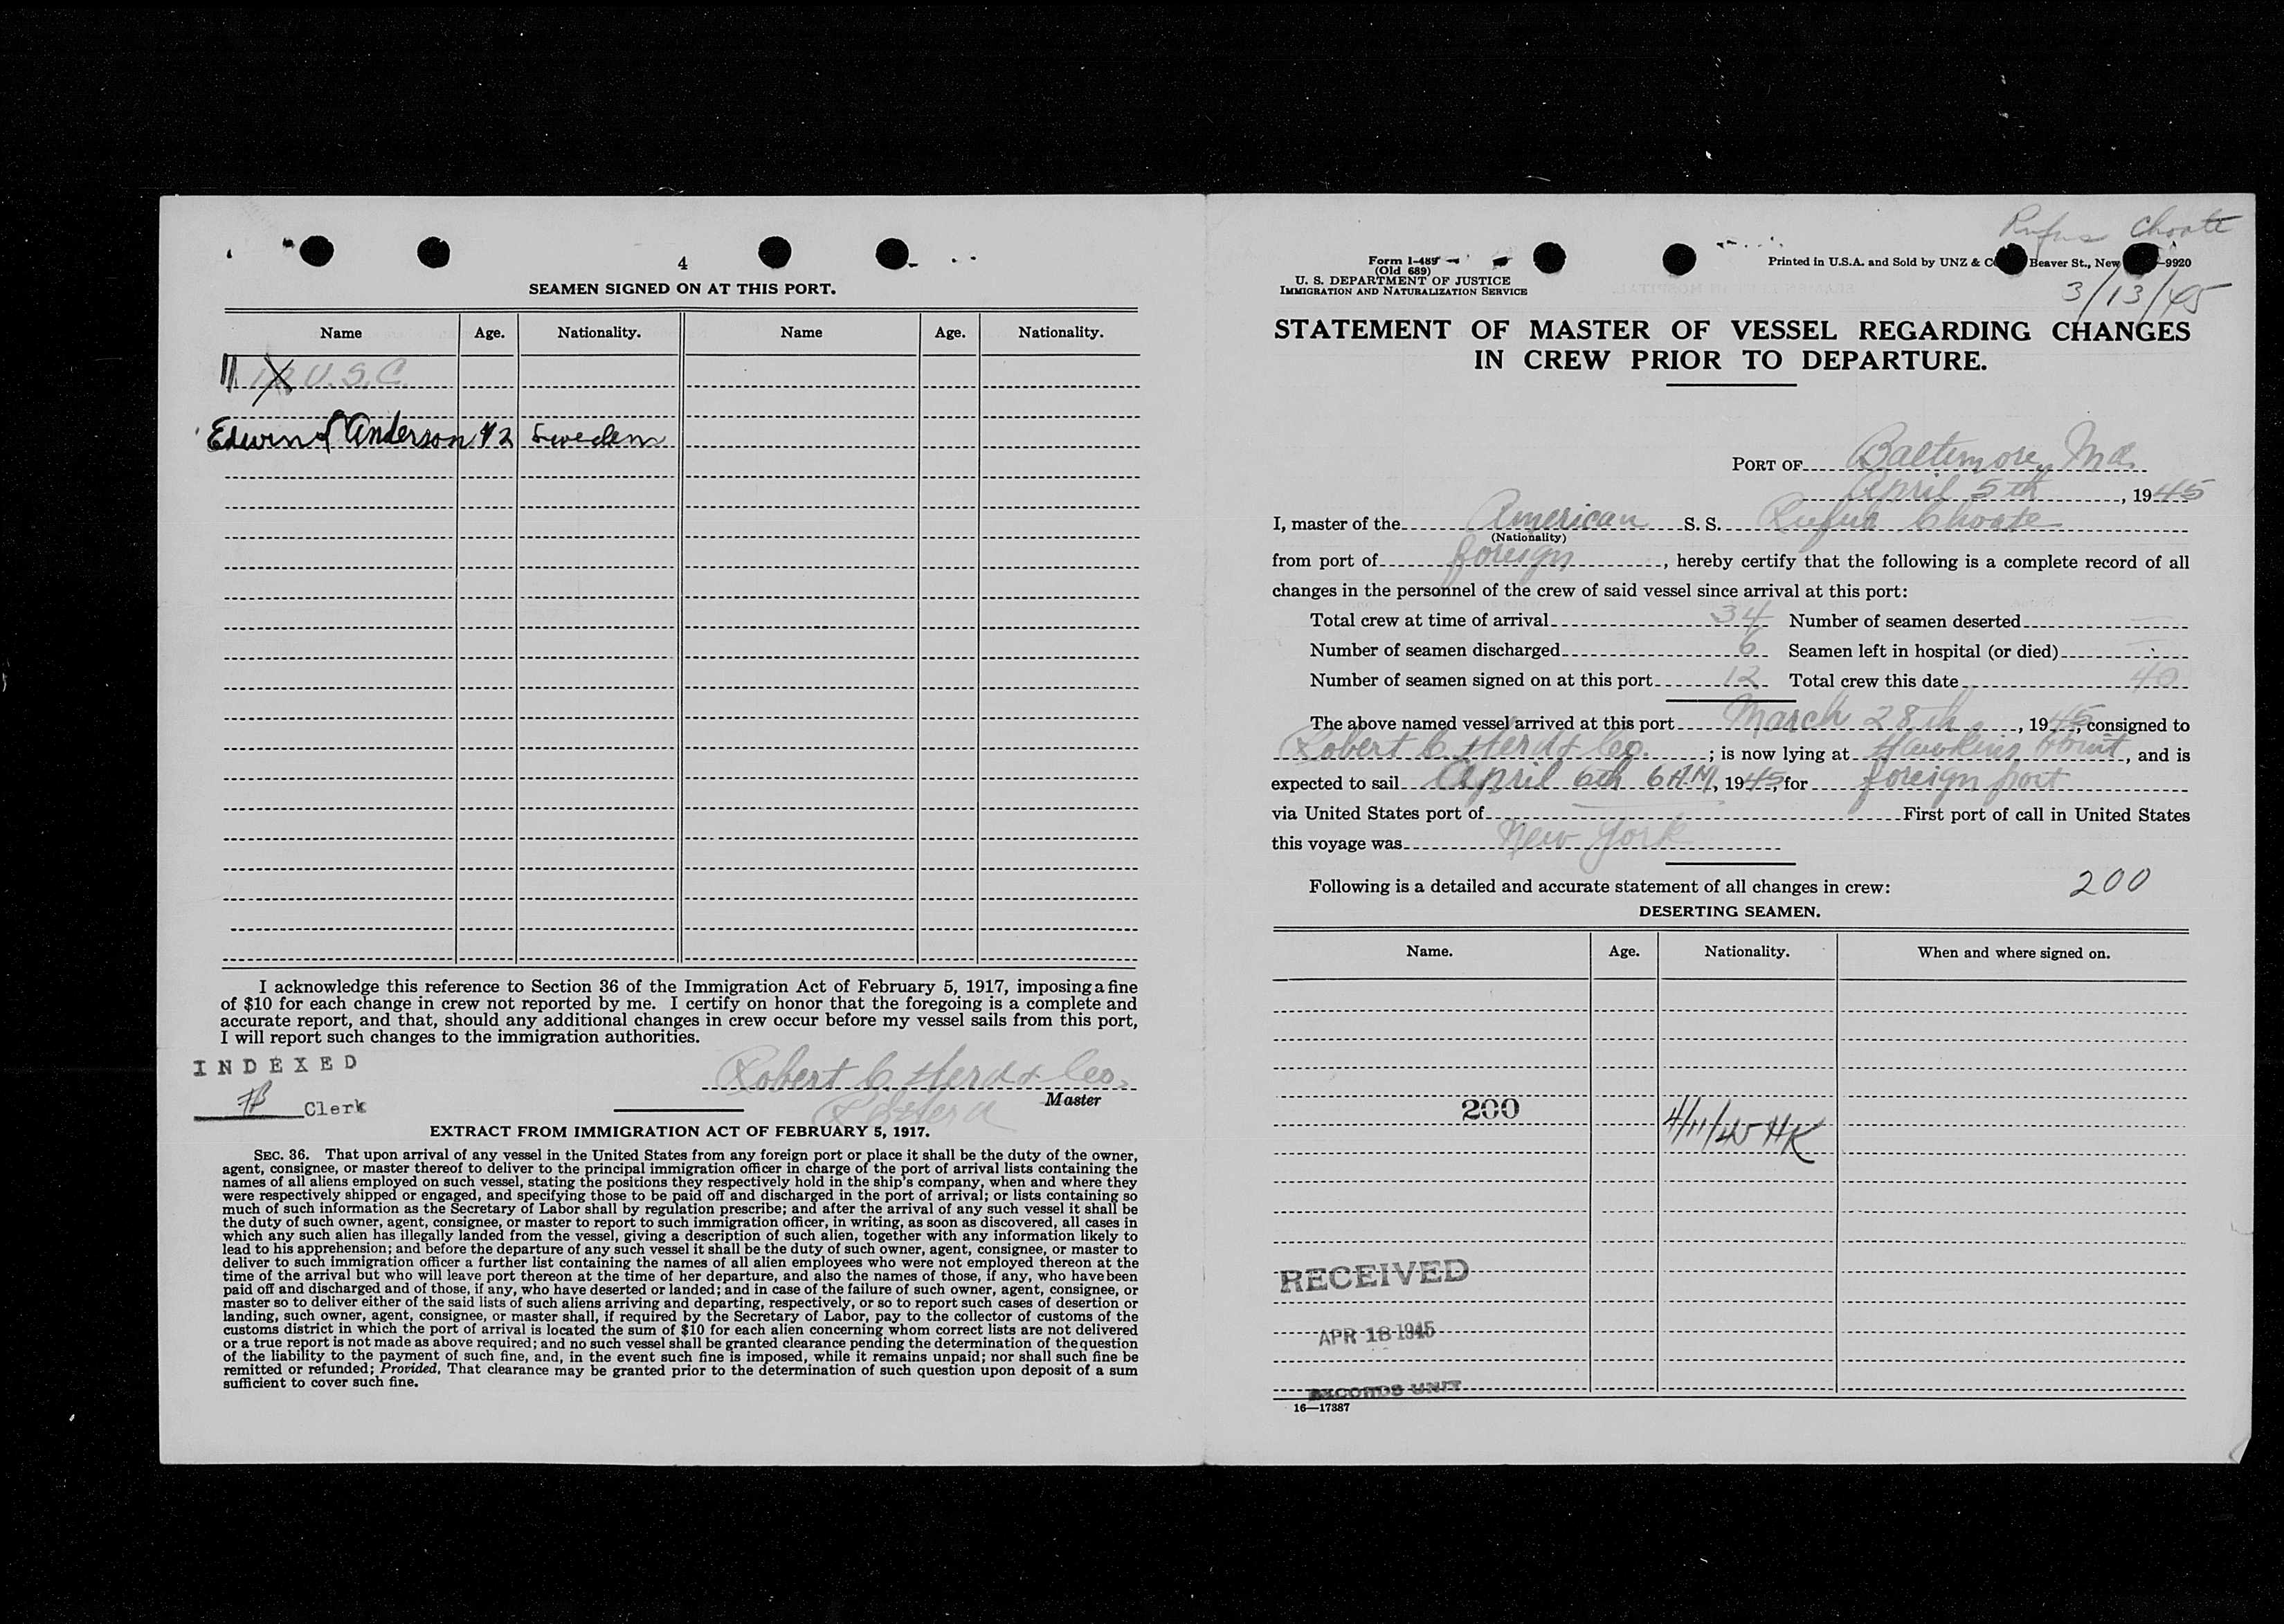 4
SEAMEN SIGNED ON AT THIS PORT.
Name Age. Nationality. Name Age. Nationality.
11 12 U.S.C.
Edwin Anderson 42 Sweden
I acknowledge this reference to Section 36 of the Immigration Act of February 5, 1917, imposing a fine
of $10 for each change in crew not reported by me. I certify on honor that the foregoing is a complete and
accurate report, and that, should any additional changes in crew occur before my vessel sails from this port,
I will report such changes to the immigration authorities.
INDEXED
Clerk
Robert C. Herd & Co.
Master
EXTRACT FROM IMMIGRATION ACT OF FEBRUARY 5, 1917.
SEC. 36. That upon arrival of any vessel in the United States from any foreign port or place it shall be the duty of the owner,
agent, consignee, or master thereof to deliver to the principal immigration officer in charge of the port of arrival lists containing the
names of all aliens employed on such vessel, stating the positions they respectively hold in the ship's company, when and where they
were respectively shipped or engaged, and specifying those to be paid off and discharged in the port of arrival; or lists containing so
much of such information as the Secretary of Labor shall by regulation prescribe; and after the arrival of any such vessel it shall be
the duty of such owner, agent, consignee, or master to report to such immigration officer, in writing, as soon as discovered, all cases in
which any such alien has illegally landed from the vessel, giving a description of such alien, together with any information likely to
lead to his apprehension; and before the departure of any such vessel it shall be the duty of such owner, agent, consignee, or master to
deliver to such immigration officer a further list containing the names of all alien employees who were not employed thereon at the
time of the arrival but who will leave port thereon at the time of her departure, and also the names of those, if any, who have been
paid off and discharged and of those, if any, who have deserted or landed; and in case of the failure of such owner, agent, consignee, or
master so to deliver either of the said lists of such aliens arriving and departing, respectively, or so to report such cases of desertion or
landing, such owner, agent, consignee, or master shall, if required by the Secretary of Labor, pay to the collector of customs of the
customs district in which the port of arrival is located the sum of $10 for each alien concerning whom correct lists are not delivered
or a true report is not made as above required; and no such vessel shall be granted clearance pending the determination of the question
of the liability to the payment of such fine, and, in the event such fine is imposed, while it remains unpaid; nor shall such fine be
remitted or refunded; Provided, That clearance may be granted prior to the determination of such question upon deposit of a sum
sufficient to cover such fine.
Rufus Choate
Form I-489
(Old 689)
U. S. DEPARTMENT OF JUSTICE
IMMIGRATION AND NATURALIZATION SERVICE
Printed in U.S.A. and Sold by UNZ & C Beaver St., New -9920
3/13/45
STATEMENT OF MASTER OF VESSEL REGARDING CHANGES
IN CREW PRIOR TO DEPARTURE.
PORT OF Baltimore, Md.
April 5th, 1945
I, master of the American S. S. Rufus Choate
(Nationality)
from port of foreign, hereby certify that the following is a complete record of all
changes in the personnel of the crew of said vessel since arrival at this port:
Total crew at time of arrival 34 Number of seamen deserted —
Number of seamen discharged 6 Seamen left in hospital (or died) —
Number of seamen signed on at this port 12 Total crew this date 40
The above named vessel arrived at this port March 28th, 1945, consigned to
Robert C. Herd & Co.; is now lying at Hawkins Point, and is
expected to sail April 6th 6 A.M., 1945, for foreign port
via United States port of First port of call in United States
this voyage was New York
Following is a detailed and accurate statement of all changes in crew: 200
DESERTING SEAMEN.
Name. Age. Nationality. When and where signed on.
200 4/11/45 HK
RECEIVED
APR 18 1945
RECORDS UNIT
16—17387